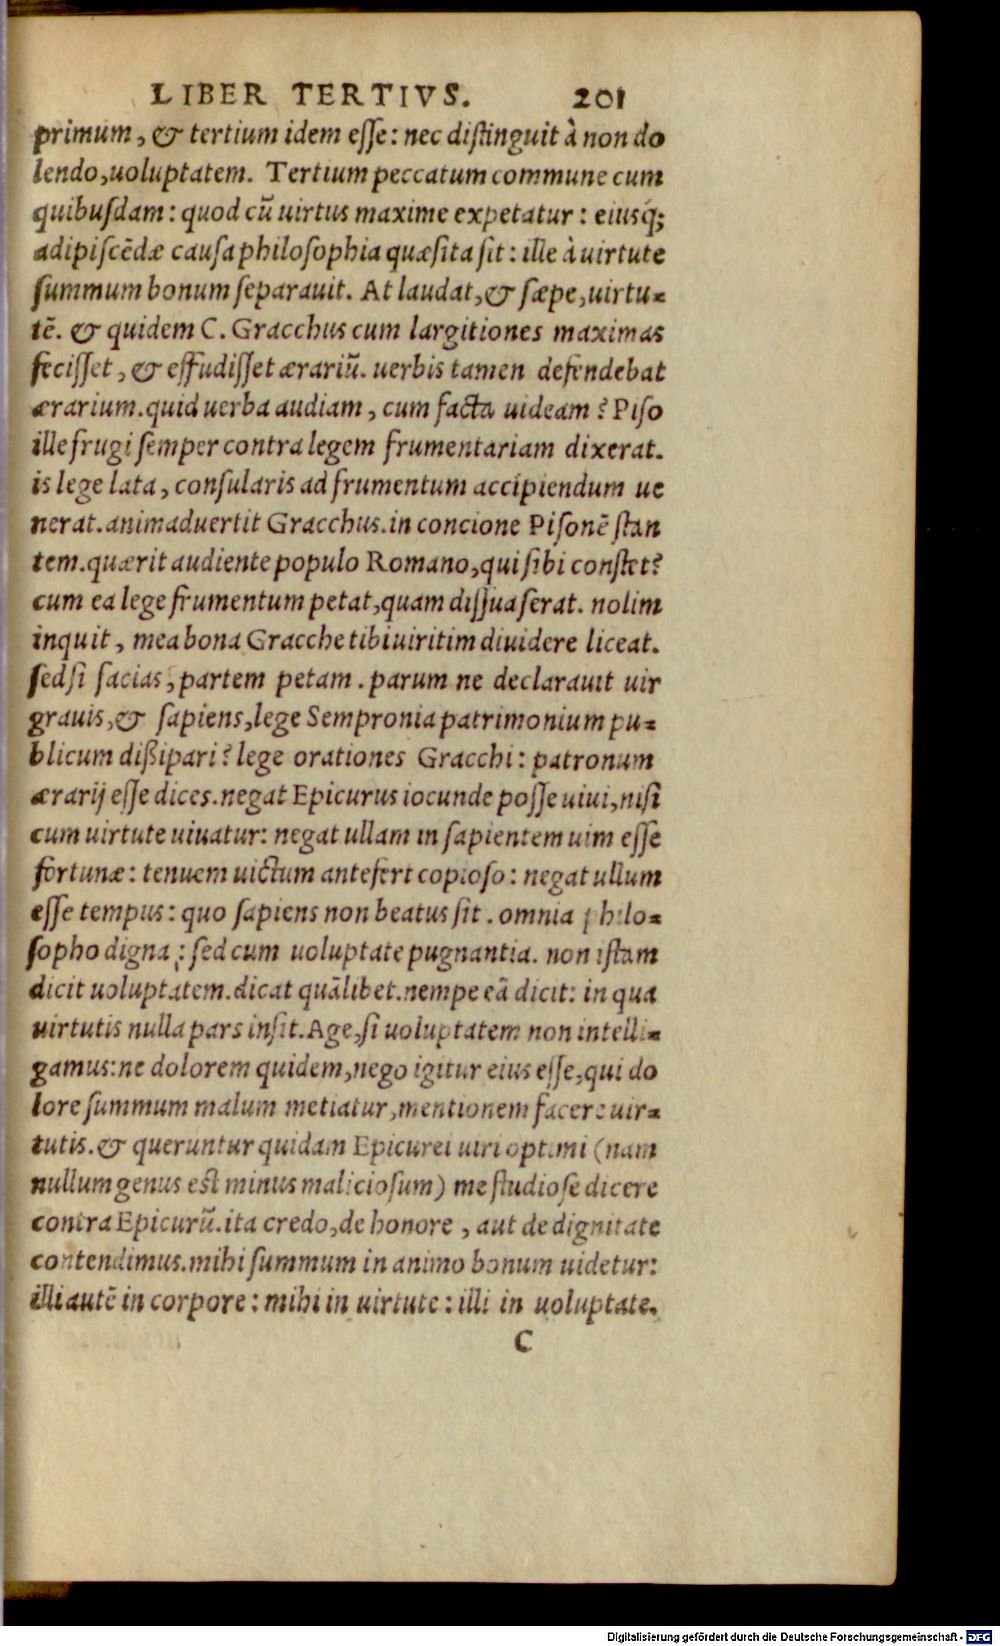 LIBER TERTIVS. 201
primum, & tertium idem esse: nec distinguit à non do
lendo, uoluptatem. Tertium peccatum commune cum
quibusdam: quod cũ uirtus maxime expetatur: eiusq́;
adipiscẽdæ causa philosophia quæsita sit: ille à uirtute
summum bonum separauit. At laudat, & sæpe, uirtu-
tẽ. & quidem C. Gracchus cum largitiones maximas
fecisset, & effudisset ærariũ. uerbis tamen defendebat
ærarium. quid uerba audiam, cum facta uideam? Piso
ille frugi semper contra legem frumentariam dixerat.
is lege lata, consularis ad frumentum accipiendum ue
nerat. animaduertit Gracchus. in concione Pisonẽ stan
tem. quærit audiente populo Romano, qui sibi constet?
cum ea lege frumentum petat, quam dissuaserat. nolim
inquit, mea bona Gracche tibi uiritim diuidere liceat.
sed si facias, partem petam. parum ne declarauit uir
grauis, & sapiens, lege Sempronia patrimonium pu-
blicum dißipari? lege orationes Gracchi: patronum
ærarij esse dices. negat Epicurus iocunde posse uiui, nisi
cum uirtute uiuatur: negat ullam in sapientem uim esse
fortunæ: tenuem uictum antefert copioso: negat ullum
esse tempus: quo sapiens non beatus sit. omnia philo-
sopho digna; sed cum uoluptate pugnantia. non istam
dicit uoluptatem. dicat quãlibet. nempe eã dicit: in qua
uirtutis nulla pars insit. Age, si uoluptatem non intelli-
gamus: ne dolorem quidem, nego igitur eius esse, qui do
lore summum malum metiatur, mentionem facere uir-
tutis. & queruntur quidam Epicurei uiri optimi (nam
nullum genus est minus maliciosum) me studiose dicere
contra Epicurũ. ita credo, de honore, aut de dignitate
contendimus. mihi summum in animo bonum uidetur:
illi autẽ in corpore: mihi in uirtute: illi in uoluptate.
C
Digitalisierung gefördert durch die Deutsche Forschungsgemeinschaft - DFG